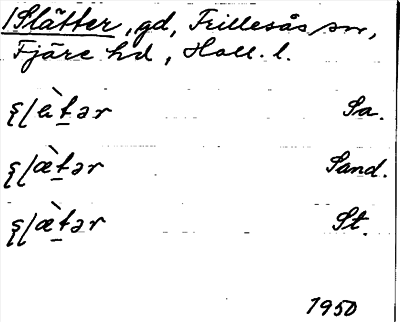 1 Slätter, gd, Frillesås sn,
Fjäre hd, Hall. l.
ʂlàt̠ər Sa.
ʂlæ̀t̠ər Sand.
ʂlæ̀t̠ər St.
1950